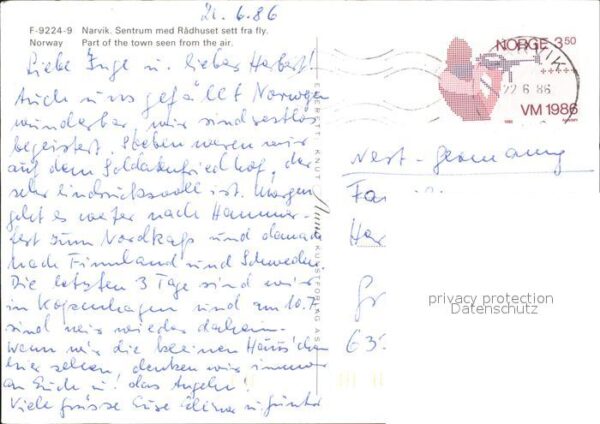 21.6.86
F-9224-9 Narvik. Sentrum med Rådhuset sett fra fly.
Norway Part of the town seen from the air.
Liebe Inge u. lieber Herbert!
Auch uns gefällt Norwegen
wunderbar, wir sind restlos
begeistert. Soeben waren wir
auf dem Soldatenfriedhof, der
sehr eindrucksvoll ist. Morgen
geht es weiter nach Hammer-
fest zum Nordkap und danach
nach Finnland und Schweden.
Die letzten 3 Tage sind wir
in Kopenhagen und am 10.7.
sind wir wieder daheim.
Wenn wir die kleinen Häus'chen
hier sehen, denken wir immer
an Euch u. das Angeln!
Viele Grüsse Eure u. Günter
ENERETT: KNUT Aune KUNSTFORLAG A.S.
NORGE 3,50
VIK
22 6 86
VM 1986
West-Germany
Fa
Ha
Gr
63
privacy protection
Datenschutz